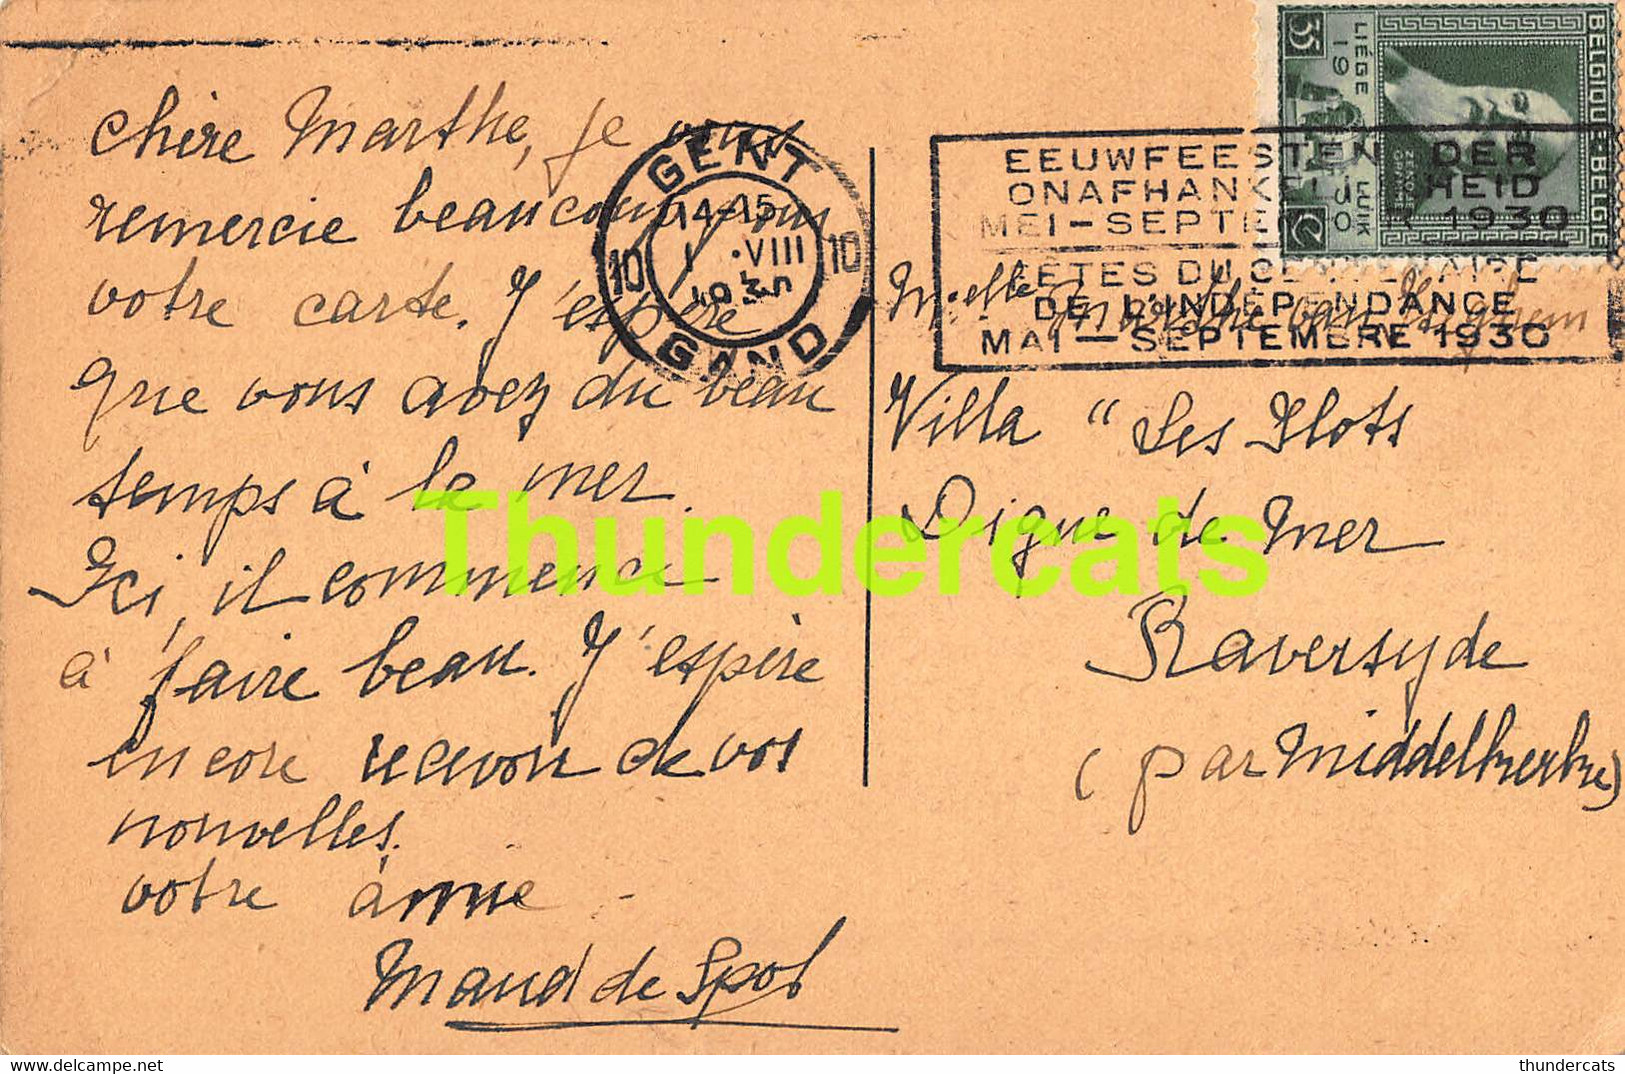 Chère Marthe, je vous
remercie beaucoup pour
votre carte. J'espère
que vous avez du beau
temps à la mer.
Ici, il commence
à faire beau. J'espère
encore recevoir de vos
nouvelles.
votre amie
Maud de
GENT
14-15
1 VIII
1930
10 10
GAND
EEUWFEESTEN DER
ONAFHANKELIJKHEID
MEI-SEPTEMBER 1930
FÊTES DU CENTENAIRE
DE L'INDÉPENDANCE
MAI-SEPTEMBRE 1930
BELGIQUE·BELGIE
LIÉGE LUIK
19 30
35 c
Melle Marthe van
Villa "Les Ilots
Digue de Mer
Raversyde
(par Middelkerke)
Thundercats
delcampe.net
thundercats